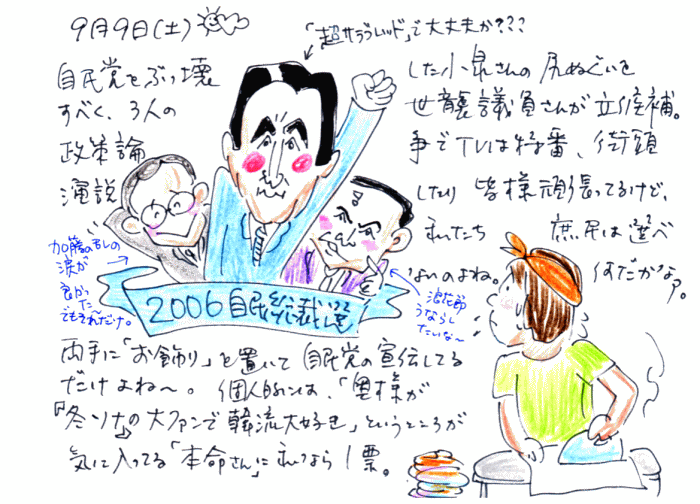 9月9日(土)
「超サラブレッド」で大丈夫か???
自民党をぶっ壊 した小泉さんの尻ぬぐいを
すべく、3人の 世襲議員さんが立候補。
政策論 争でTVは特番、街頭
演説 したり 皆様頑張ってるけど、
私たち 庶民は選べ
ないのよね。 何だかなァ。
加藤の乱の
涙が
良かった…
でもそれだけ。
浪花節
うならし
たいな〜
2006自民総裁選
両手に「お飾り」を置いて 自民党の宣伝してる
だけよね〜。 個人的には、「奥様が
『冬ソナ』の大ファンで韓流大好き」というところが
気に入ってる「本命さん」に私なら1票。